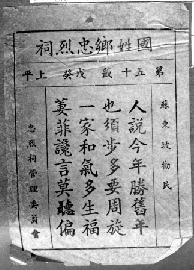 國姓鄉忠烈祠
第五十籤 戊癸 上平
蘇東坡勸民
人說今年勝舊年
也須步步要周旋
一家和氣多生福
萋菲讒言莫聽偏
忠烈祠管理委員會